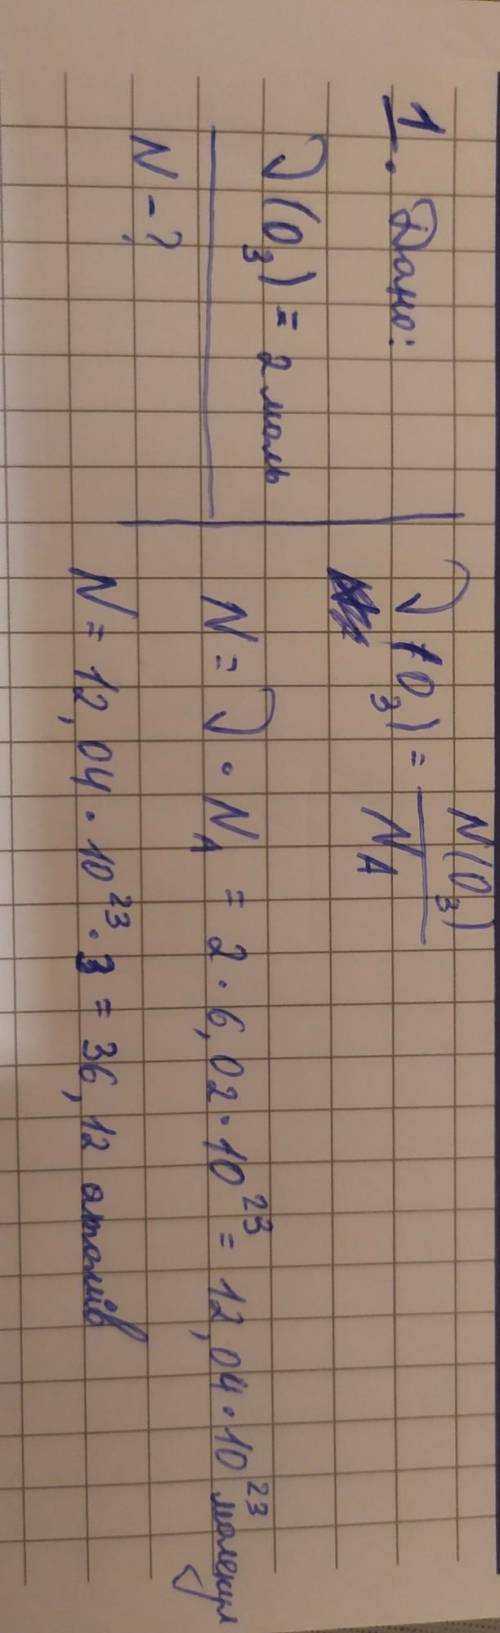 1. Дано:
ν(O₃) = 2 моль
N - ?
ν(O₃) = N(O₃) / N_A
N = ν · N_A = 2 · 6,02 · 10²³ = 12,04 · 10²³ молекул
N = 12,04 · 10²³ · 3 = 36,12 атомів